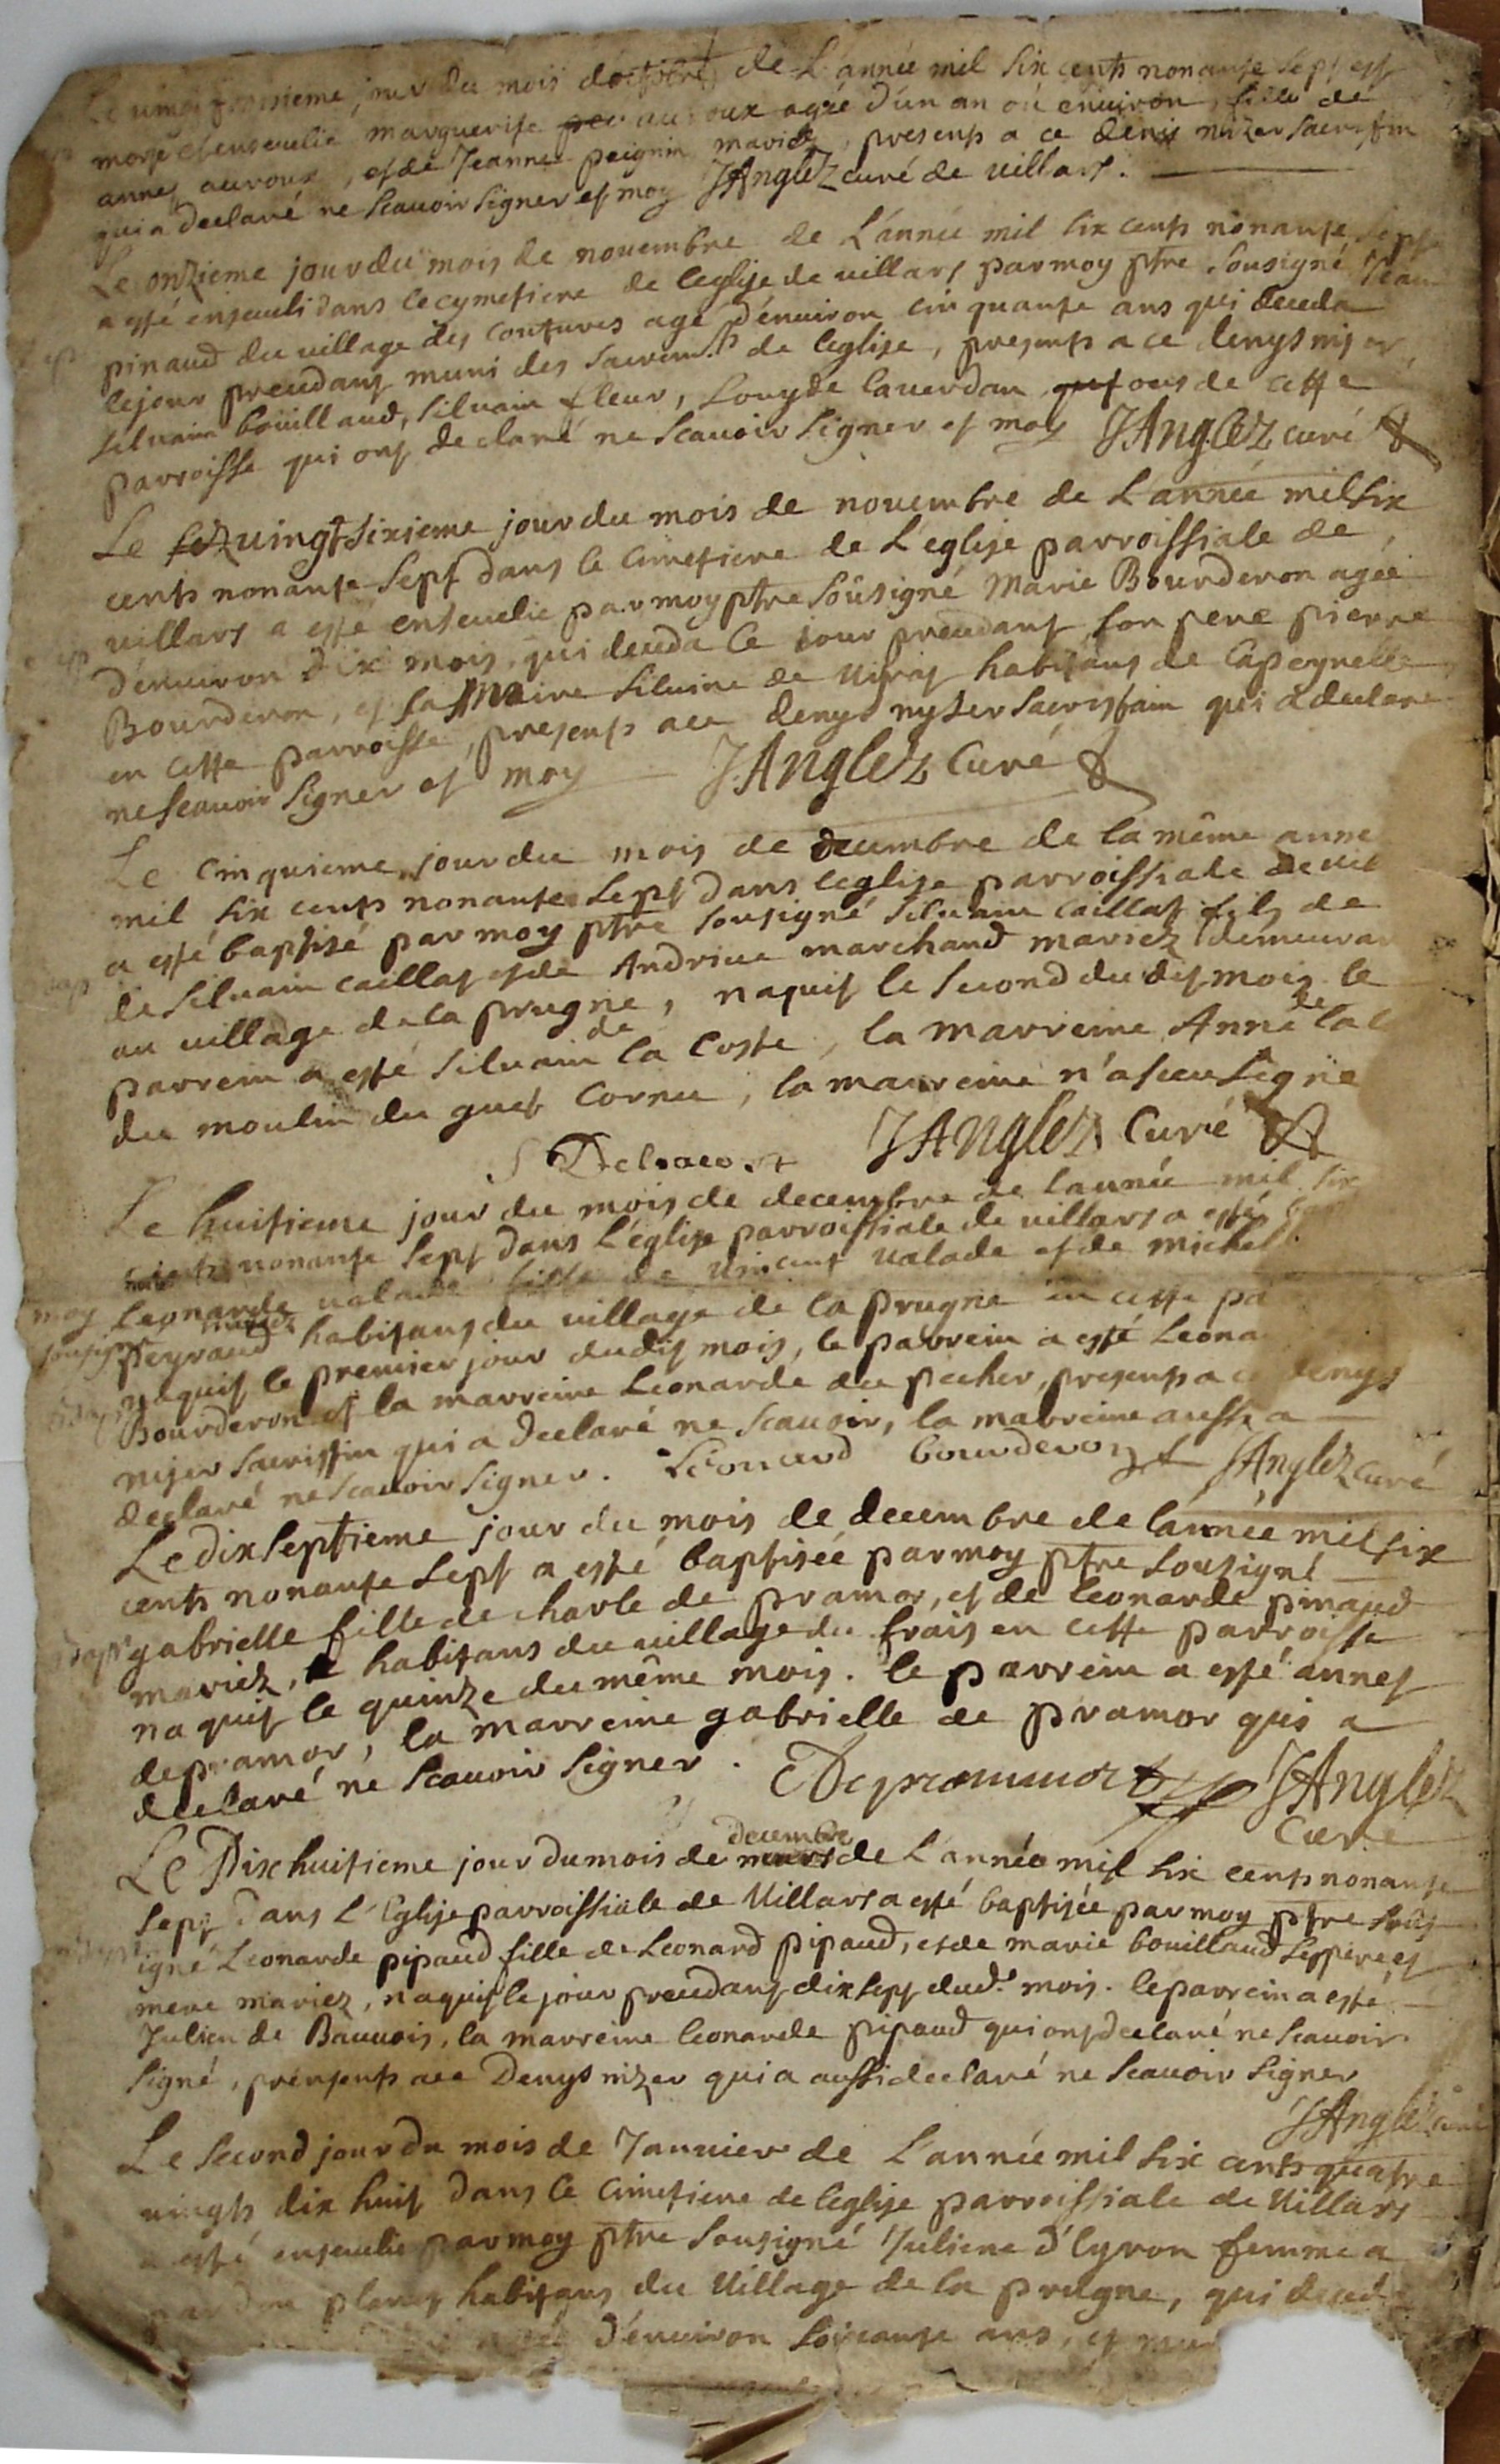 Le vingt troisieme jour du mois doctobre de L'année mil six cents nonante sept est
morte et enseuelie marguerite auroux agée d'un an ou enuiron, fille de
annet auroux, et de Jeanne peignin mariez, presents a ce denis nizer sacristin
qui a declaré ne scauoir signer et moy JAnglez curé de villars.
Le onzieme jour du mois de nouembre de L'année mil six cents nonante sept
a esté enseueli dans le cymetiere de leglise de villars par moy ptre sousigné Jean
pinaud du village des coutures agé d'enuiron cinquante ans qui deceda
le jour precedant muni des sacremts de leglise, presents a ce denys niser
siluain boüillaud, siluain fleur, Louys de lauerdan tous de cette
parroisse qui ont declaré ne scauoir signer et moy JAnglez curé
Le vingt sixieme jour du mois de nouembre de L'année mil six
cents nonante sept dans le cimetiere de L'eglise parroissiale de
villars a esté enseuelie par moy ptre sousigné Marie Bourderon agée
d'enuiron dix mois, qui deceda le jour precedant son pere pierre
Bourderon, et sa Maire siluine de Virat habitans de lapeyrelle
en cette parroisse, presents a ce denys nyser sacristain qui a declare
ne scauoir signer et moy JAnglez Curé
Le cinquieme jour du mois de decembre de la même anne
mil six cents nonante sept dans leglise parroissiale de vil
a esté baptisé par moy ptre sousigné siluain caillat fils de
de siluain caillat et de Andriue marchand mariez demeuran
au village de la prugne, naquit le second du dit mois le
parrein a esté siluain de la Coste, la marreine Anne de la
du moulin du guet Cornu, la marreine n'a sceu signe
S Delacost JAnglez Curé
Le huitieme jour du mois de decembre de l'année mil six
cents nonante sept dans L'église parroissiale de villars a esté bap
moy Leonarde valade fille de vincent valade et de michel
sousigné peyraud mariez habitans du village de la prugne en cette pa
naquit le premier jour dudit mois, le parrein a esté Leona
Bourderon et la marreine Leonarde du pecher, presents a ce denys
niser sacristin qui a declaré ne scauoir, la marreine aussi a
declaré ne scauoir signer. Leonard bourderon JAnglez curé
Le dix septieme jour du mois de decembre de l'année mil six
cents nonante sept a esté baptisée par moy ptre sousigné
gabrielle fille de charle de pramor, et de leonarde pinaud
mariez, habitans du village du frais en cette parroisse
naquit le quinze du même mois. le parrein a esté annet
de pramor, la marreine gabrielle de pramor qui a
declaré ne scauoir signer. Deprammor JAnglez
Curé
Le Dix huitieme jour du mois de decembre de L'année mil six cents nonante
sept dans L'Eglise parroissiale de Villars a esté baptisée par moy ptre sous
igné Leonarde pipaud fille de Leonard pipaud, et de marie bouillaud ses pere et
mere mariez, naquit le jour precedant dix sept dud. mois. le parrein a esté
Julien de Bauuois, la marreine leonarde pipaud qui ont declaré ne scauoir
signé, presents a ce Denys nizer qui a aussi declaré ne scauoir signer
JAnglez curé
Le second jour du mois de Januier de L'année mil six cents quatre
vingts dix huit dans le cimetiere de leglise parroissiale de Villars
a esté enseuelie par moy ptre sousigné Juliene d'lyron femme a
habitans du Village de la prugne, qui deced
d'enuiron soixante ans, et